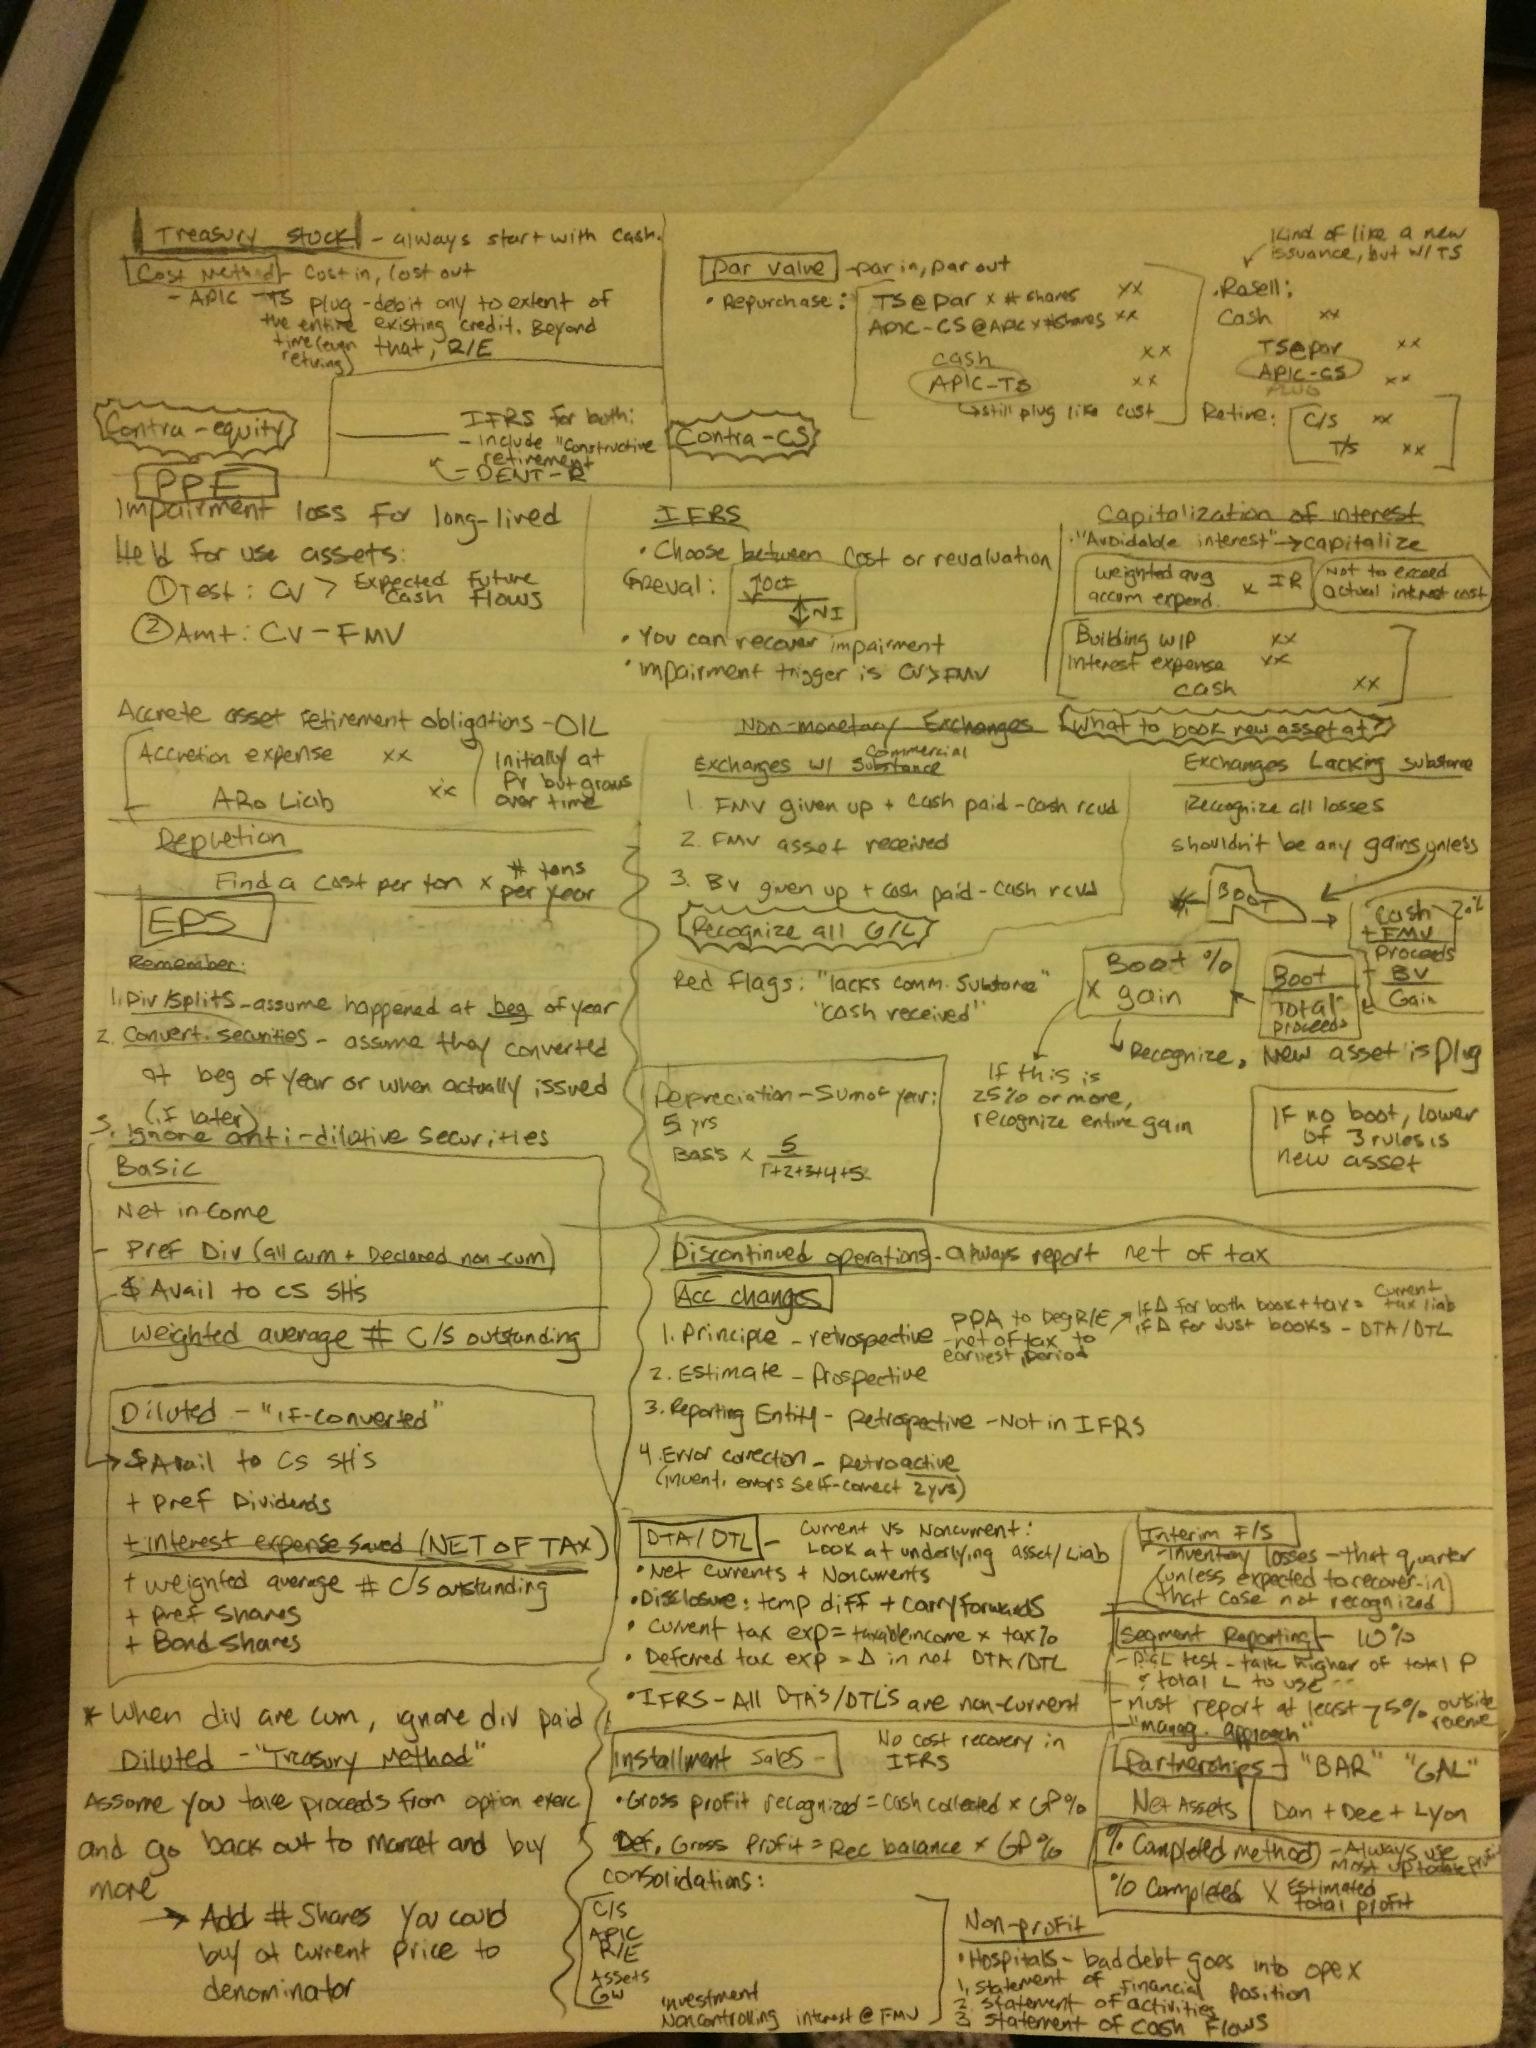 Treasury stock - always start with cash.
Cost Method - Cost in, cost out
- APIC-TS plug - debit only to extent of
the entire existing credit. Beyond
time (even that, R/E
retiring)
Contra-equity
IFRS for both:
- include "Constructive
retirement
DENT-R
Par value - par in, par out
• Repurchase:
TS@par x # shares xx
APIC-CS@APIC x #shares xx
cash xx
APIC-TS xx
↳ still plug like cost
Contra-CS
Kind of like a new
issuance, but w/ TS
• Resell:
Cash xx
TS@par xx
APIC-CS xx
PLUG
Retire:
C/S xx
T/S xx
PPE
Impairment loss for long-lived
Held for use assets:
① Test: CV > Expected Future
Cash flows
② Amt: CV - FMV
Accrete asset retirement obligations - OIL
Accretion expense xx
ARO Liab xx
Initially at
PV but grows
over time
Depletion
Find a cost per ton x # tons
per year
IFRS
• Choose between cost or revaluation
↳ reval: ↑OCI
↕NI
• You can recover impairment
• Impairment trigger is CV>FMV
Capitalization of interest
• "Avoidable interest" → capitalize
weighted avg
accum expend. x IR
Not to exceed
actual interest cost
Building WIP xx
Interest expense xx
cash xx
Non-monetary Exchanges
What to book new asset at?
Exchanges w/ Commercial Substance
1. FMV given up + cash paid - cash rcvd
2. FMV asset received
3. BV given up + cash paid - cash rcvd
Recognize all G/L
Red flags: "lacks comm. substance"
"cash received"
Exchanges Lacking substance
Recognize all losses
shouldn't be any gains unless
BOOT
Cash 20%
+ FMV
Proceeds
- BV
Gain
Boot
Total
proceeds
Boot %
x gain
↳ Recognize, New asset is plug
If this is
25% or more,
recognize entire gain
If no boot, lower
of 3 rules is
new asset
Depreciation - Sum of year:
5 yrs
Basis x 5
1+2+3+4+5
EPS
Remember:
1. Div/splits - assume happened at beg of year
2. Convert. securities - assume they converted
at beg of year or when actually issued
(if later)
3. Ignore anti-dilative securities
Basic
Net income
- Pref Div (all cum + Declared non-cum)
$ Avail to CS SH's
Weighted average # C/S outstanding
Diluted - "if-converted"
→ $ Avail to CS SH's
+ pref Dividends
+ interest expense saved (NET OF TAX)
+ weighted average # C/S outstanding
+ Pref Shares
+ Bond Shares
* When div are cum, ignore div paid
Diluted - "Treasury Method"
Assume you take proceeds from option exerc
and go back out to market and buy
more
→ Add # Shares you could
buy at current price to
denominator
Discontinued operations - always report net of tax
Acc changes
1. Principle - retrospective
PPA to beg R/E
- net of tax to
earliest period
If Δ for both book + tax = current
tax liab
If Δ for just books - DTA/DTL
2. Estimate - Prospective
3. Reporting Entity - Retrospective - Not in IFRS
4. Error correction - Retroactive
(invent. errors self-correct 2yrs)
DTA/DTL - Current vs Noncurrent:
Look at underlying asset/Liab
• Net Currents + Noncurrents
• Disclosure: temp diff + carryforwards
• Current tax exp = taxable income x tax%
• Deferred tax exp = Δ in net DTA/DTL
• IFRS - All DTA's/DTL's are non-current
Interim F/S
- Inventory losses - that quarter
(unless expected to recover - in
that case not recognized)
Segment Reporting - 10%
- P&L test - take higher of total P
& total L to use
- Must report at least 75% outside
revenue
"manag. approach"
Installment Sales - No cost recovery in
IFRS
• Gross profit recognized = Cash collected x GP%
Def. Gross Profit = Rec balance x GP%
Partnerships - "BAR" "GAL"
Net Assets | Dan + Dee + Lyon
% Completed method - Always use
most up to date profit
% Completed x Estimated
total profit
consolidations:
C/S
APIC
R/E
Assets
GW
investment
Noncontrolling interest @ FMV
Non-profit
• Hospitals - bad debt goes into opex
1. Statement of Financial Position
2. Statement of activities
3. Statement of Cash Flows